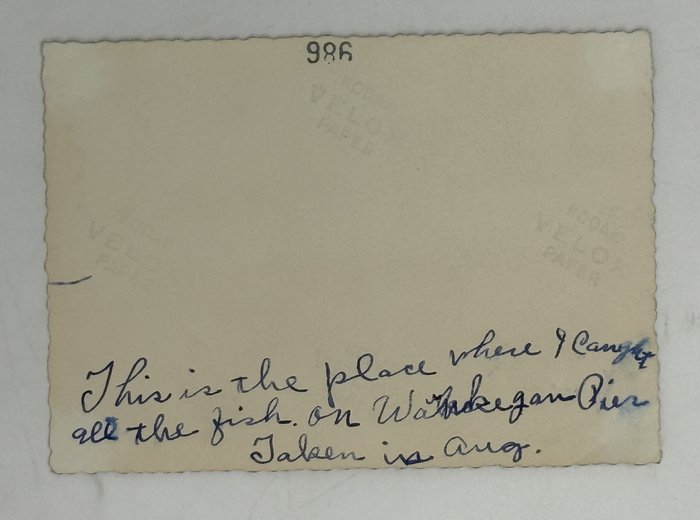 986
KODAK
VELOX
PAPER
KODAK
VELOX
PAPER
KODAK
VELOX
PAPER
This is the place where I Caught
all the fish. on Waukegan Pier
Taken in Aug.